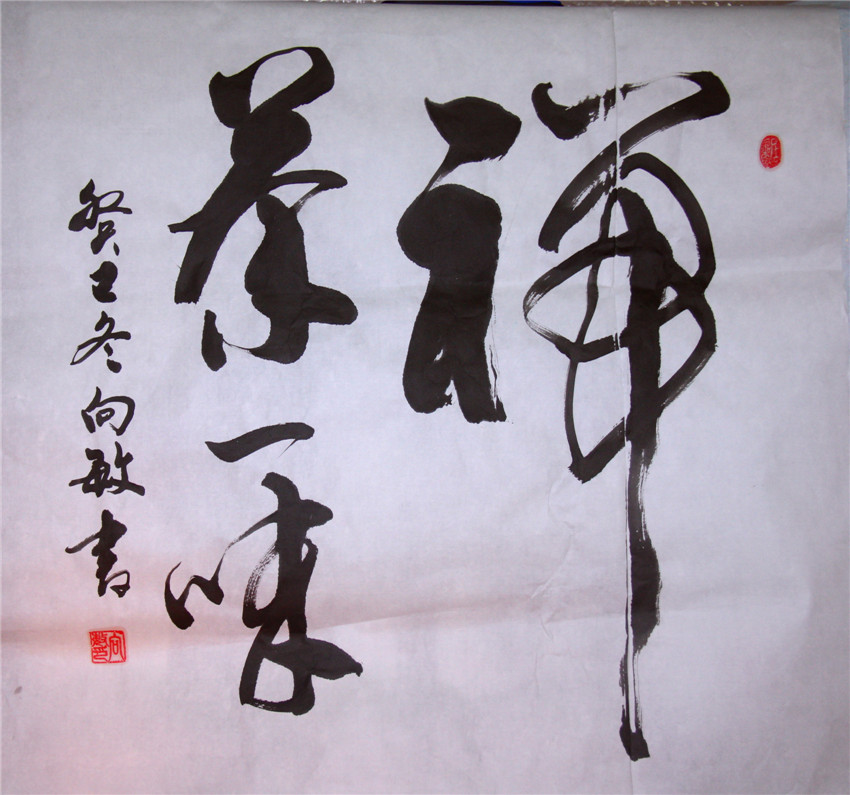 禅
茶一味
癸巳冬向敏書